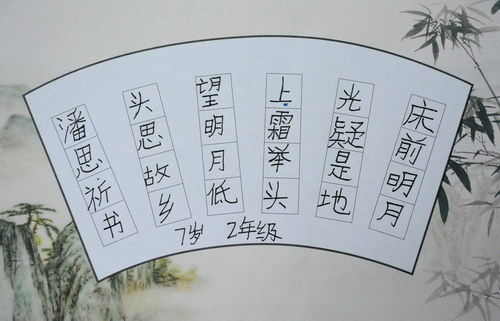 床前明月
光疑是地
上霜举头
望明月低
头思故乡
潘思祈书
7岁 2年级